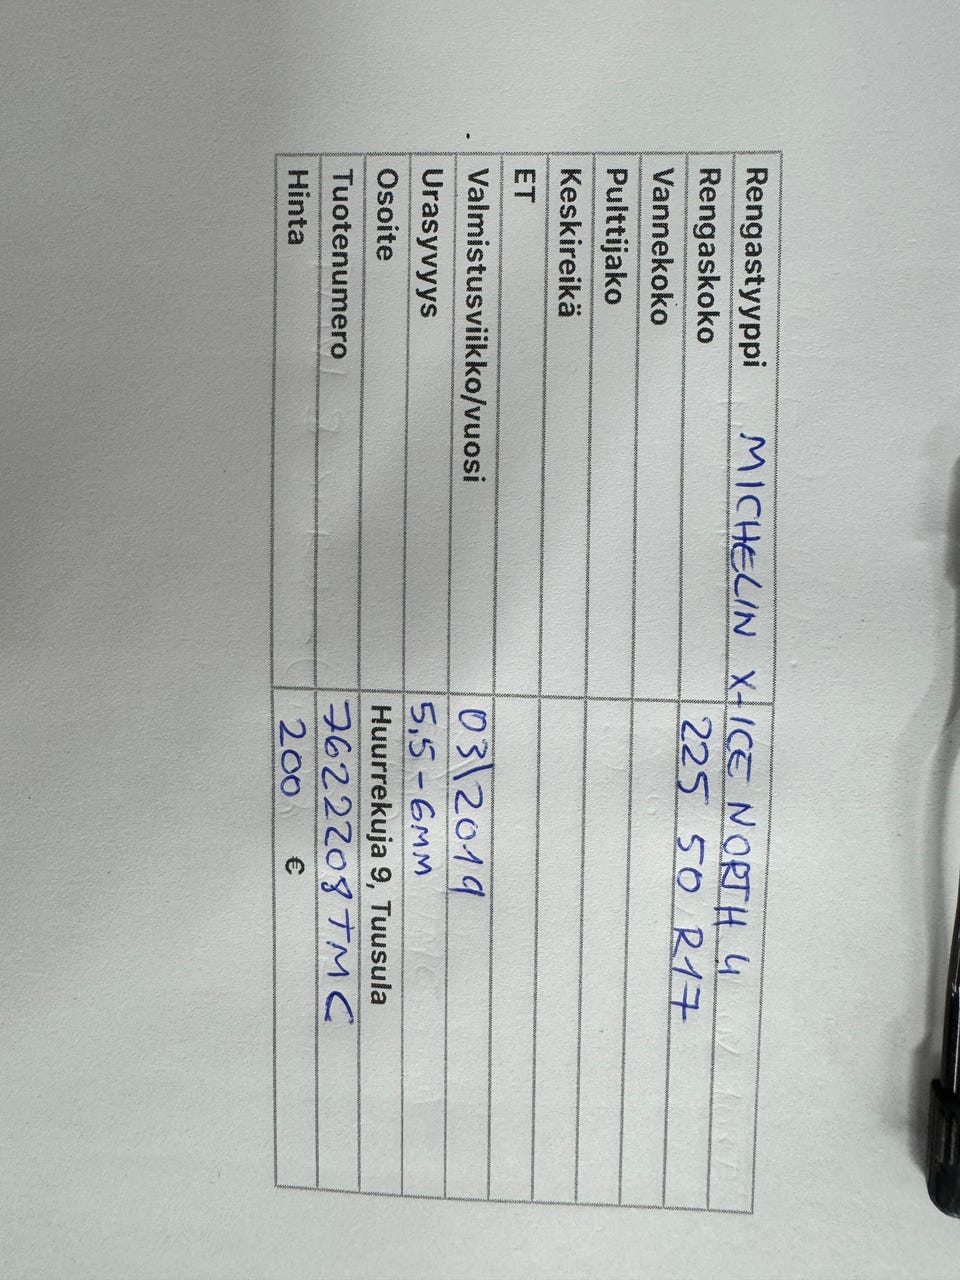 Rengastyyppi MICHELIN X-ICE NORTH 4
Rengaskoko 225 50 R17
Vannekoko
Pulttijako
Keskireikä
ET
Valmistusviikko/vuosi 03\2019
Urasyvyys 5,5-6MM
Osoite Huurrekuja 9, Tuusula
Tuotenumero 7622208TMC
Hinta 200 €